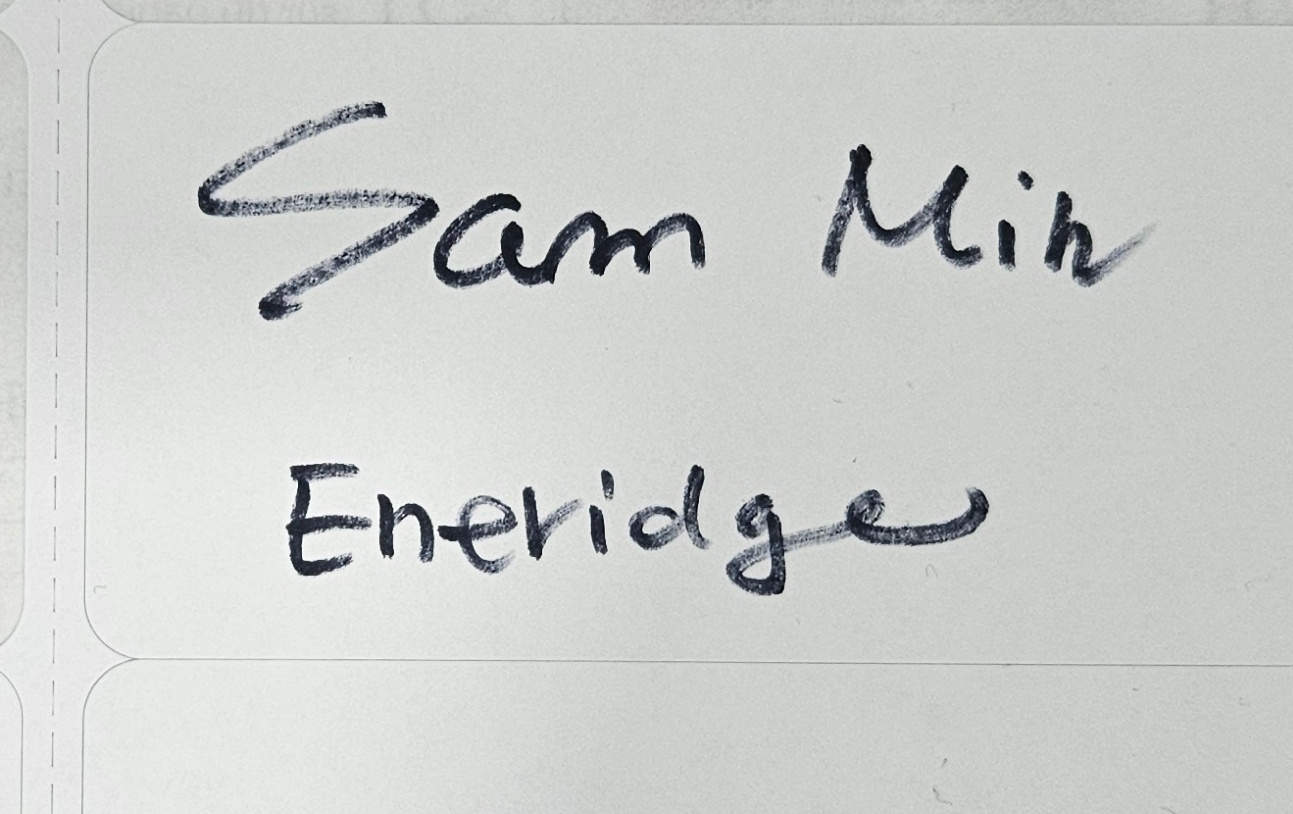 Sam Min
Eneridge